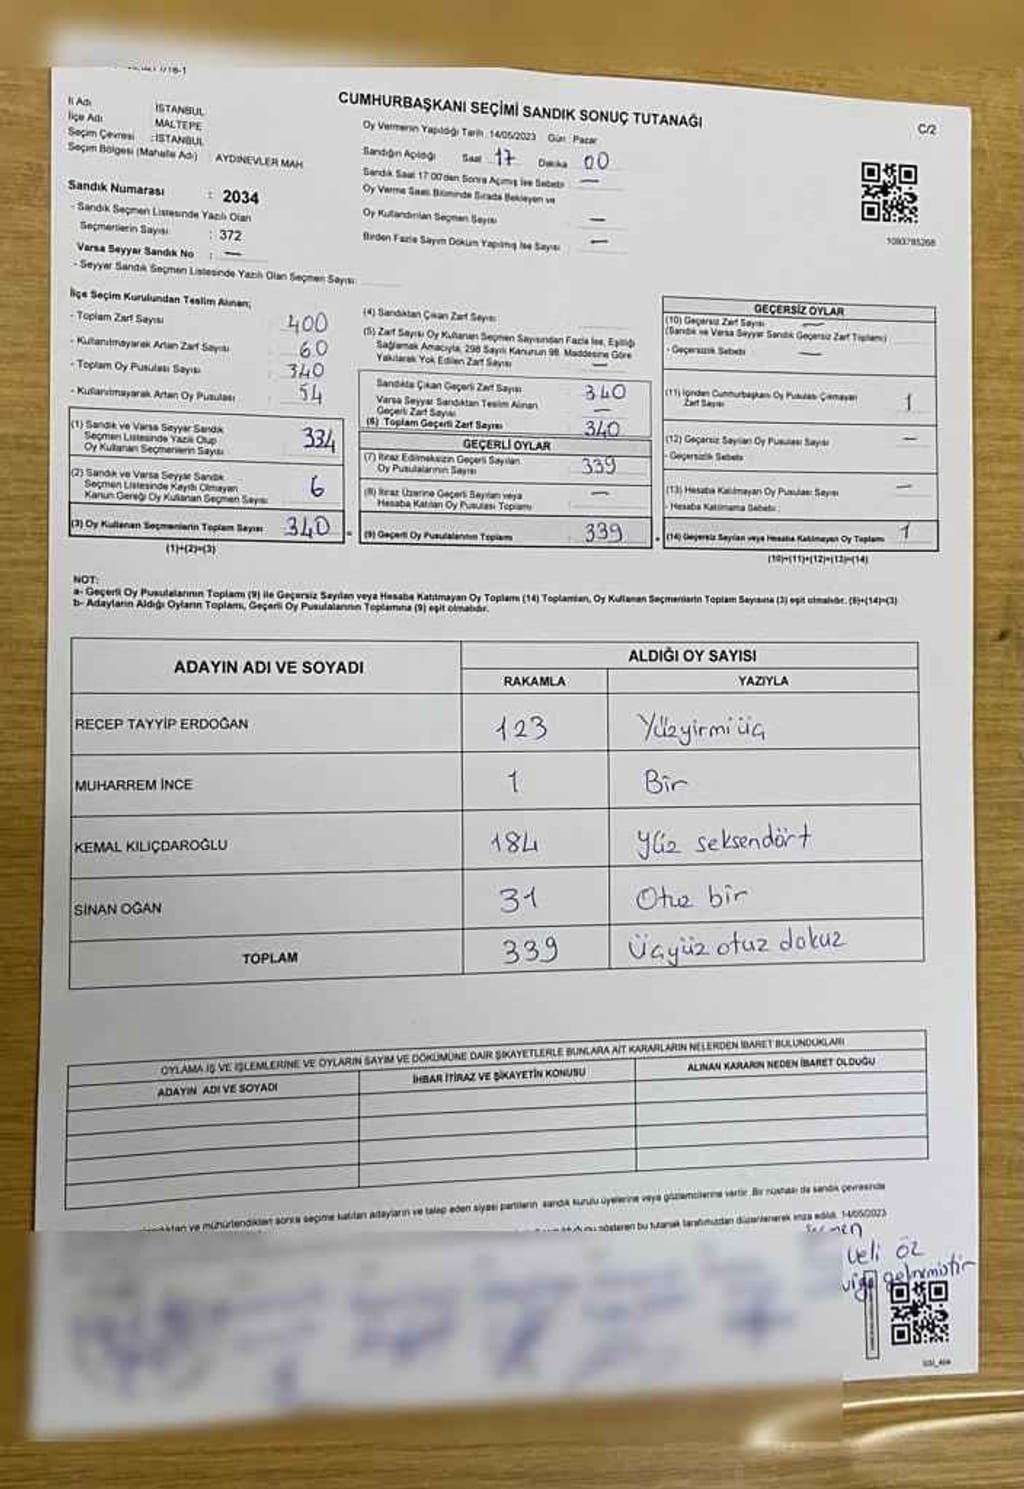 CUMHURBAŞKANI SEÇİMİ SANDIK SONUÇ TUTANAĞI
C/2
İl Adı İSTANBUL
İlçe Adı MALTEPE
Seçim Çevresi : İSTANBUL
Seçim Bölgesi (Mahalle Adı) AYDINEVLER MAH.
Sandık Numarası : 2034
- Sandık Seçmen Listesinde Yazılı Olan
Seçmenlerin Sayısı : 372
Varsa Seyyar Sandık No : —
- Seyyar Sandık Seçmen Listesinde Yazılı Olan Seçmen Sayısı:
Oy Vermenin Yapıldığı Tarih: 14/05/2023 Gün: Pazar
Sandığın Açıldığı Saat 17 Dakika 00
Sandık Saat 17:00'den Sonra Açılmış İse Sebebi —
Oy Verme Saati Bitiminde Sırada Bekleyen ve
Oy Kullandırılan Seçmen Sayısı —
Birden Fazla Sayım Döküm Yapılmış İse Sayısı —
1093785268
İlçe Seçim Kurulundan Teslim Alınan;
- Toplam Zarf Sayısı 400
- Kullanılmayarak Artan Zarf Sayısı 60
- Toplam Oy Pusulası Sayısı 340
- Kullanılmayarak Artan Oy Pusulası 54
(1) Sandık ve Varsa Seyyar Sandık
Seçmen Listesinde Yazılı Olup
Oy Kullanan Seçmenlerin Sayısı 334
(2) Sandık ve Varsa Seyyar Sandık
Seçmen Listesinde Kayıtlı Olmayan
Kanun Gereği Oy Kullanan Seçmen Sayısı 6
(3) Oy Kullanan Seçmenlerin Toplam Sayısı 340
(1)+(2)=(3)
(4) Sandıktan Çıkan Zarf Sayısı
(5) Zarf Sayısı Oy Kullanan Seçmen Sayısından Fazla İse, Eşitliği
Sağlamak Amacıyla, 298 Sayılı Kanunun 98. Maddesine Göre
Yakılarak Yok Edilen Zarf Sayısı —
Sandıkta Çıkan Geçerli Zarf Sayısı 340
Varsa Seyyar Sandıktan Teslim Alınan
Geçerli Zarf Sayısı —
(6) Toplam Geçerli Zarf Sayısı 340
GEÇERLİ OYLAR
(7) İtiraz Edilmeksizin Geçerli Sayılan
Oy Pusulalarının Sayısı 339
(8) İtiraz Üzerine Geçerli Sayılan veya
Hesaba Katılan Oy Pusulası Toplamı —
(9) Geçerli Oy Pusulalarının Toplamı 339
GEÇERSİZ OYLAR
(10) Geçersiz Zarf Sayısı —
(Sandık ve Varsa Seyyar Sandık Geçersiz Zarf Toplamı)
- Geçersizlik Sebebi —
(11) İçinden Cumhurbaşkanı Oy Pusulası Çıkmayan
Zarf Sayısı 1
(12) Geçersiz Sayılan Oy Pusulası Sayısı —
- Geçersizlik Sebebi
(13) Hesaba Katılmayan Oy Pusulası Sayısı —
- Hesaba Katılmama Sebebi :
(14) Geçersiz Sayılan veya Hesaba Katılmayan Oy Toplamı 1
(10)+(11)+(12)+(13)=(14)
NOT:
a- Geçerli Oy Pusulalarının Toplamı (9) ile Geçersiz Sayılan veya Hesaba Katılmayan Oy Toplamı (14) Toplamları, Oy Kullanan Seçmenlerin Toplam Sayısına (3) eşit olmalıdır. (9)+(14)=(3)
b- Adayların Aldığı Oyların Toplamı, Geçerli Oy Pusulalarının Toplamına (9) eşit olmalıdır.
ADAYIN ADI VE SOYADI ALDIĞI OY SAYISI
RAKAMLA YAZIYLA
RECEP TAYYİP ERDOĞAN 123 Yüzyirmi üç
MUHARREM İNCE 1 Bir
KEMAL KILIÇDAROĞLU 184 Yüz seksendört
SİNAN OĞAN 31 Otuz bir
TOPLAM 339 Üçyüz otuz dokuz
OYLAMA İŞ VE İŞLEMLERİNE VE OYLARIN SAYIM VE DÖKÜMÜNE DAİR ŞİKAYETLERLE BUNLARA AİT KARARLARIN NELERDEN İBARET BULUNDUKLARI
ADAYIN ADI VE SOYADI İHBAR İTİRAZ VE ŞİKAYETİN KONUSU ALINAN KARARIN NEDEN İBARET OLDUĞU
ve mühürlendikten sonra seçime katılan adayların ve talep eden siyasi partilerin sandık kurulu üyelerine veya gözlemcilerine verilir. Bir nüshası da sandık çevresinde
gösteren bu tutanak tarafımızdan düzenlenerek imza edildi. 14/05/2023
Veli Öz
gelmemiştir